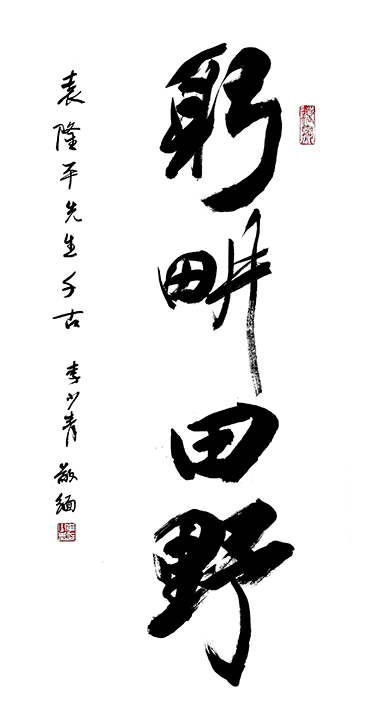 躬畊田野
袁隆平先生千古 李少青敬缅